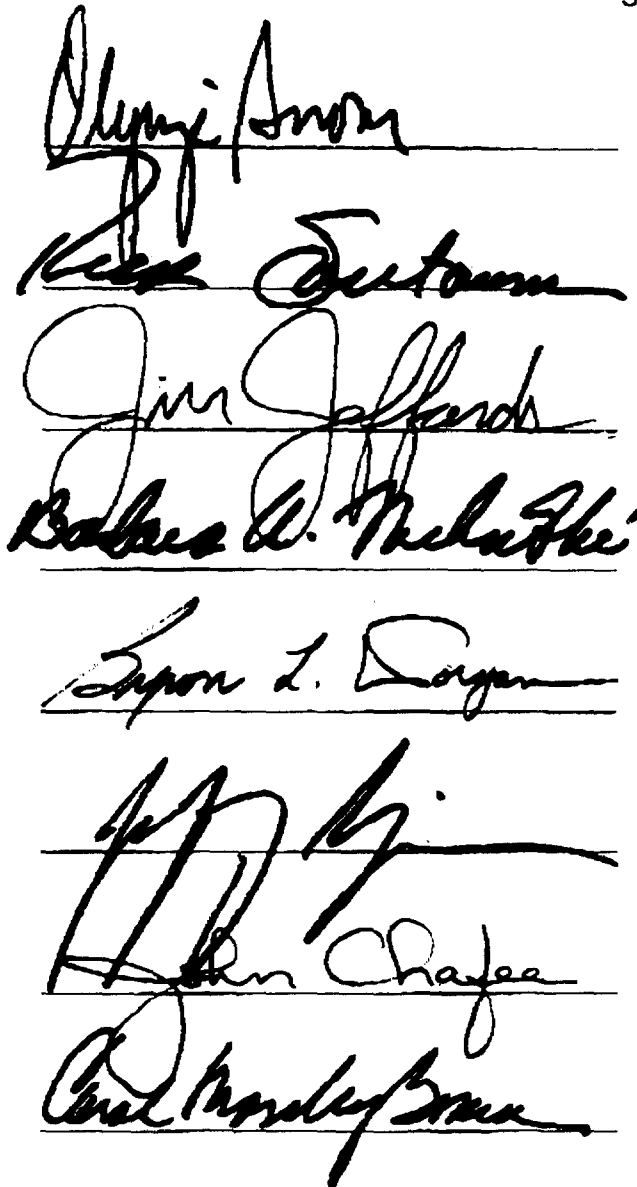 Olympia Snowe
Rick Santorum
Jim Jeffords
Barbara A. Mikulski
Byron L. Dorgan
John Chafee
Carol Moseley-Braun